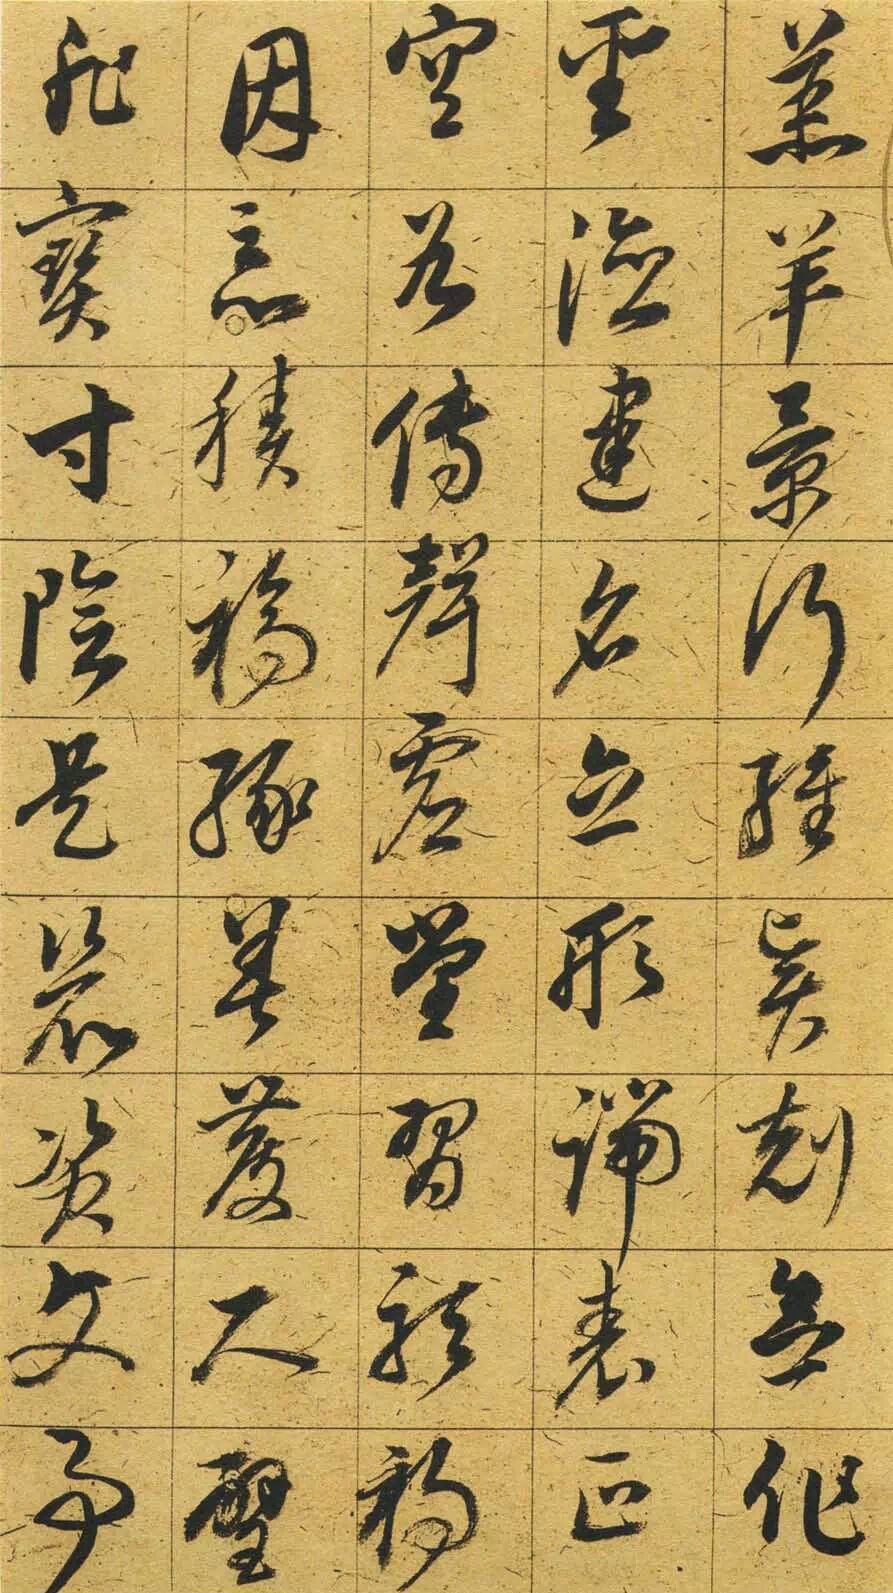 羔羊景行維賢剋念作
聖德建名立形端表正
空谷傳聲虛堂習聽禍
因惡積福緣善慶尺璧
非寶寸陰是競資父事